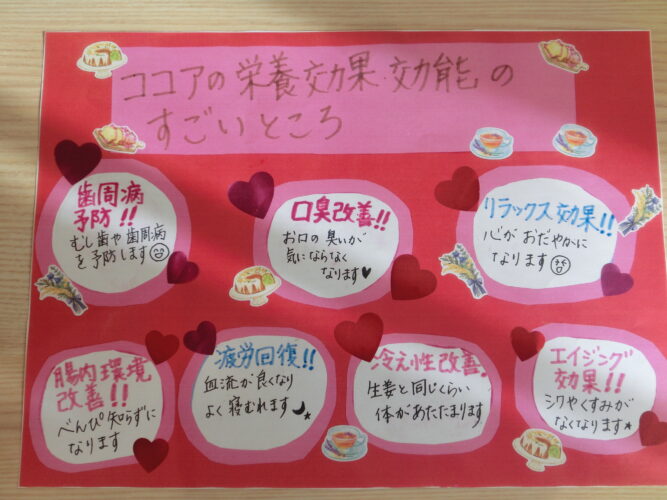 ココアの栄養効果.効能の
すごいところ
歯周病
予防!!
むし歯や歯周病
を予防します
口臭改善!!
お口の臭いが
気にならなく
なります♥
リラックス効果!!
心がおだやかに
なります
腸内環境
改善!!
べんぴ知らずに
なります
疲労回復!!
血流が良くなり
よく寝むれます
冷え性改善!
生姜と同じくらい
体があたたまります
エイジング
効果!!
シワやくすみが
なくなります